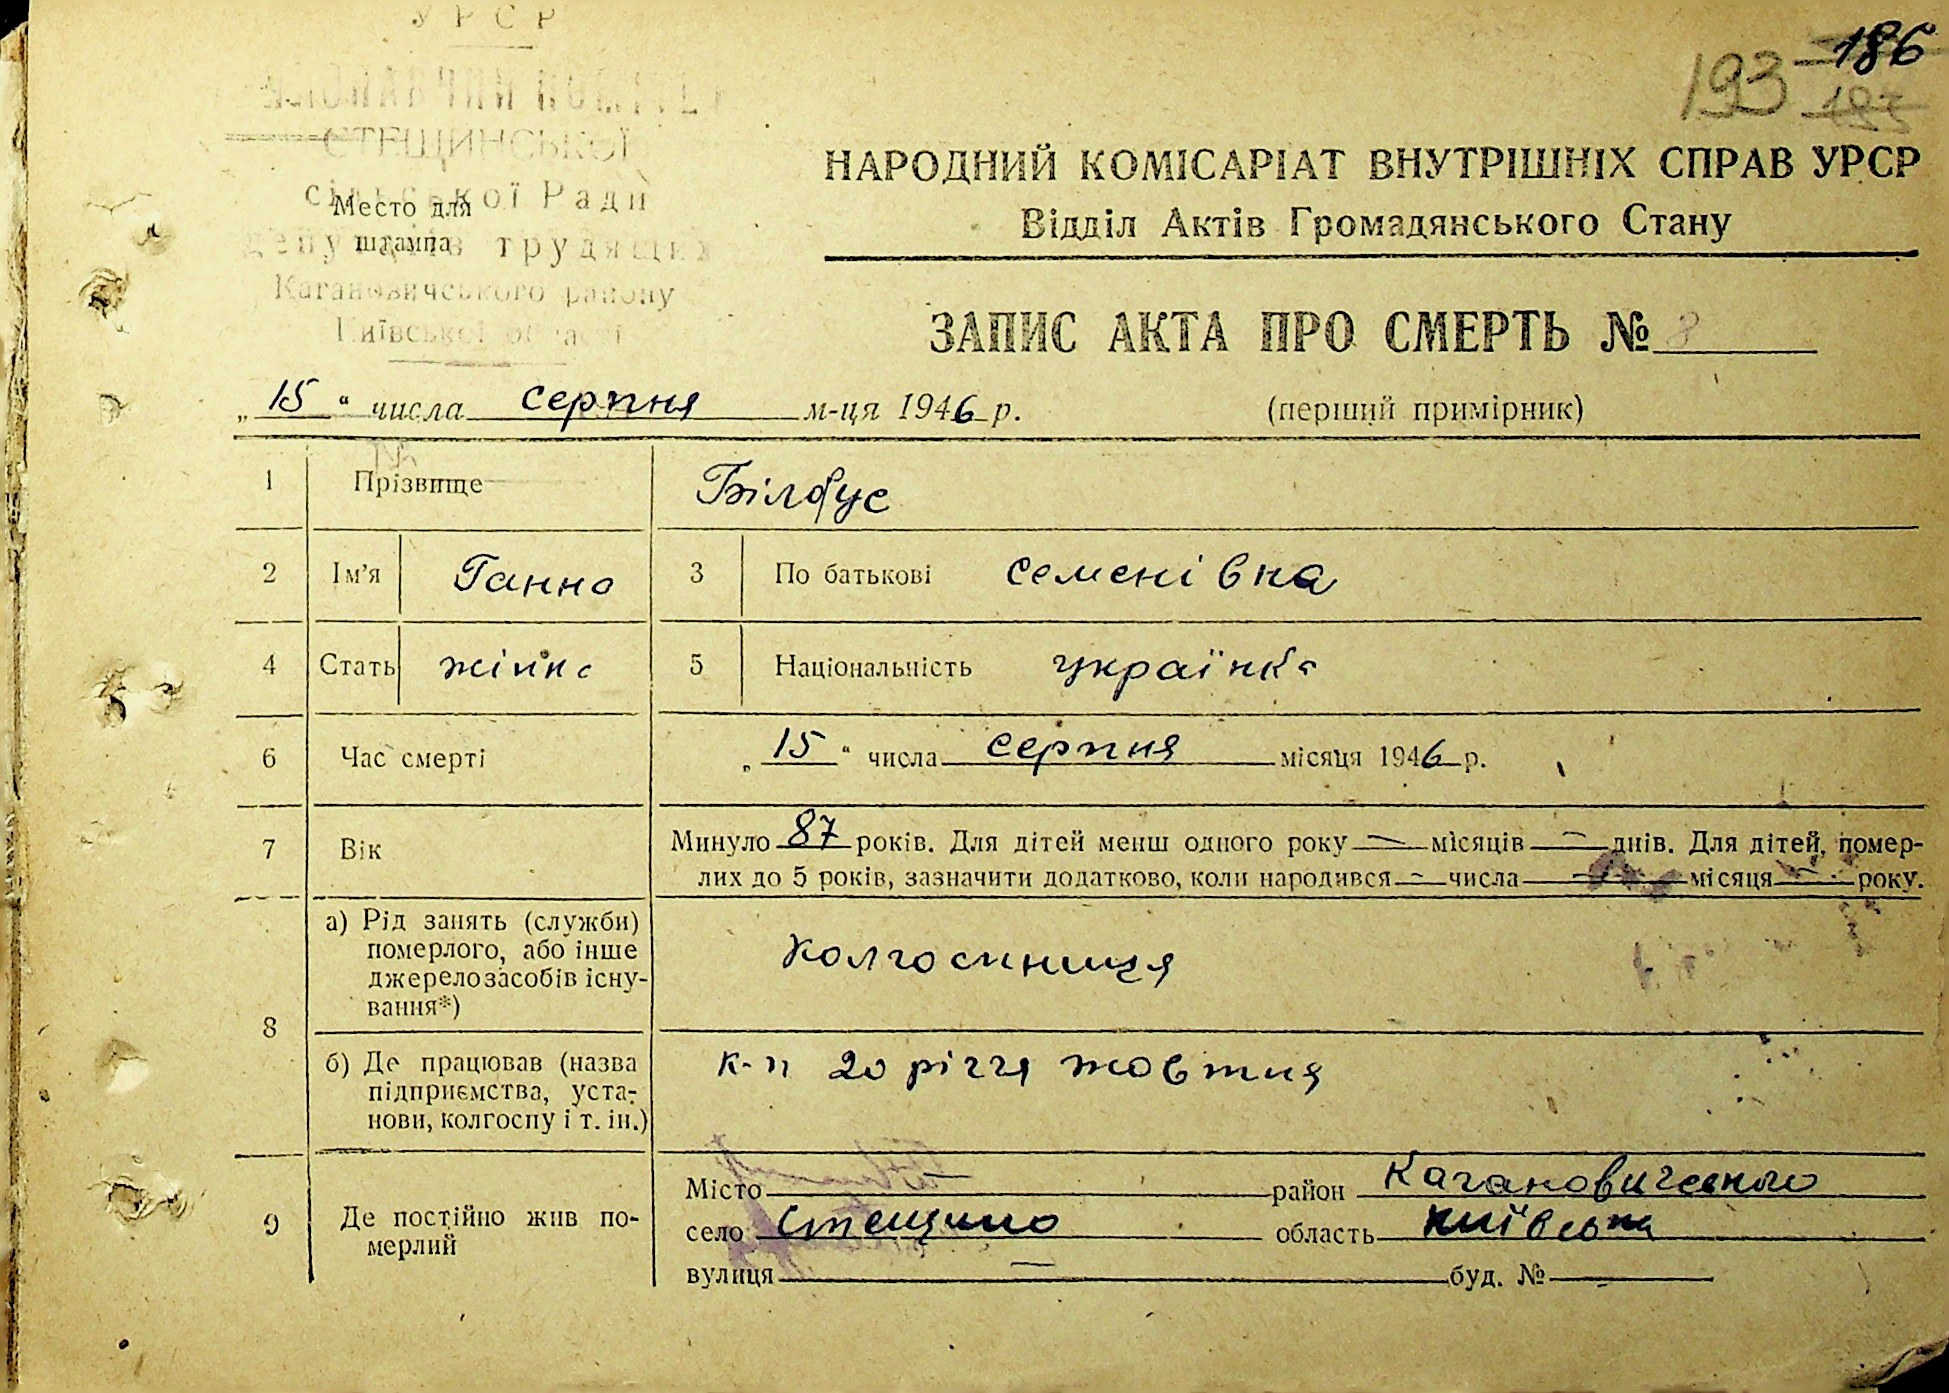 УРСР
ВИКОНАВЧИЙ КОМІТЕТ
СТЕЩИНСЬКОЇ
сільської Ради
депутатів трудящих
Кагановичського району
Київської області
Место для
штампа
193 186
НАРОДНИЙ КОМІСАРІАТ ВНУТРІШНІХ СПРАВ УРСР
Відділ Актів Громадянського Стану
ЗАПИС АКТА ПРО СМЕРТЬ № 8
„ 15 “ числа серпня м-ця 1946 р. (перший примірник)
1 Прізвище Білоус
2 Ім'я Ганна 3 По батькові Семенівна
4 Стать жінка 5 Національність українка
6 Час смерті „ 15 “ числа серпня місяця 1946 р.
7 Вік Минуло 87 років. Для дітей менш одного року — місяців — днів. Для дітей, помер-
лих до 5 років, зазначити додатково, коли народився — числа — місяця — року.
8 а) Рід занять (служби)
померлого, або інше
джерело засобів існу-
вання*)
колгоспниця
б) Де працював (назва
підприємства, уста-
нови, колгоспу і т. ін.)
к-п 20 річчя жовтня
9 Де постійно жив по-
мерлий
Місто район Кагановичського
село Стещино область Київська
вулиця — буд. №